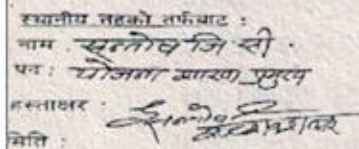 स्थानीय तहको तर्फबाट :
नाम . सन्तोष जि सी .
पद : योजना शाखा प्रमुख
हस्ताक्षर :
मिति :